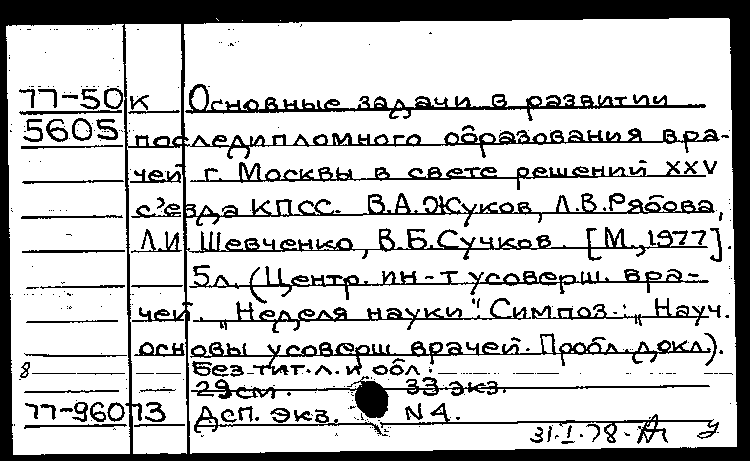 77-50к Основные задачи в развитии
5605 последипломного образования вра-
чей г. Москвы в свете решений XXV
с'езда КПСС. В.А.Жуков, Л.В.Рябова,
Л.И. Шевченко, В.Б.Сучков. [М., 1977].
5л. (Центр. ин-т усоверш. вра-
чей. „Неделя науки". Симпоз.: „Науч.
основы усоверш. врачей. Пробл. докл.).
8 Без тит. л. и обл.
29см. 33 экз.
77-96073 Дсп. экз. N4.
31.I.78.